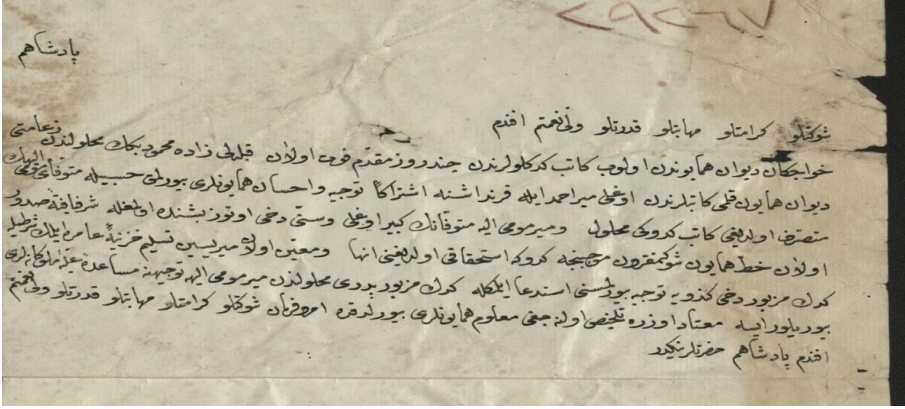 ٢٩٢٦٧
پادشاهم
شوكتلو كرامتلو مهابتلو قدرتلو ولى نعمتم افندم
خواجكان ديوان همايوندن اولوب كاتب كدكلولرندن چند روز مقدم فوت اولان قبله لى زاده محمود بكك محلولندن زعامتى
ديوان همايون قلمى كاتبلرندن اوغلى مير احمد ايله قرنداشنه اشتراكا توجيه و احسان همايونلرى بيورلمق حسبيله متوفاى مومى اليهك
متصرف اولديغى كاتب كدوكى محلول و مير مومى اليه متوفانك كبير اوغلى و سنى دخى اوتوز بشنده اولمغله شرفيافته صدور
اولان خط همايون شوكتمقرون موجبنجه كدوكه استحقاقى اولديغنى انها و معين اولان ميريسين تسليم خزينه عامره ايلمك شرطيله
كدك مزبور دخى كندويه توجيه بيورلمسنى استدعا ايتمكله كدك مزبور پدرى محلولندن مير مومى اليهه توجيهنه مساعده عليه ملوكانه لرى
بيوريلور ايسه معتاد اوزره تلخيص اولنه جغى معلوم همايونلرى بيورلدقده امر و فرمان شوكتلو كرامتلو مهابتلو قدرتلو ولى نعمتم
افندم پادشاهم حضرتلرينكدر